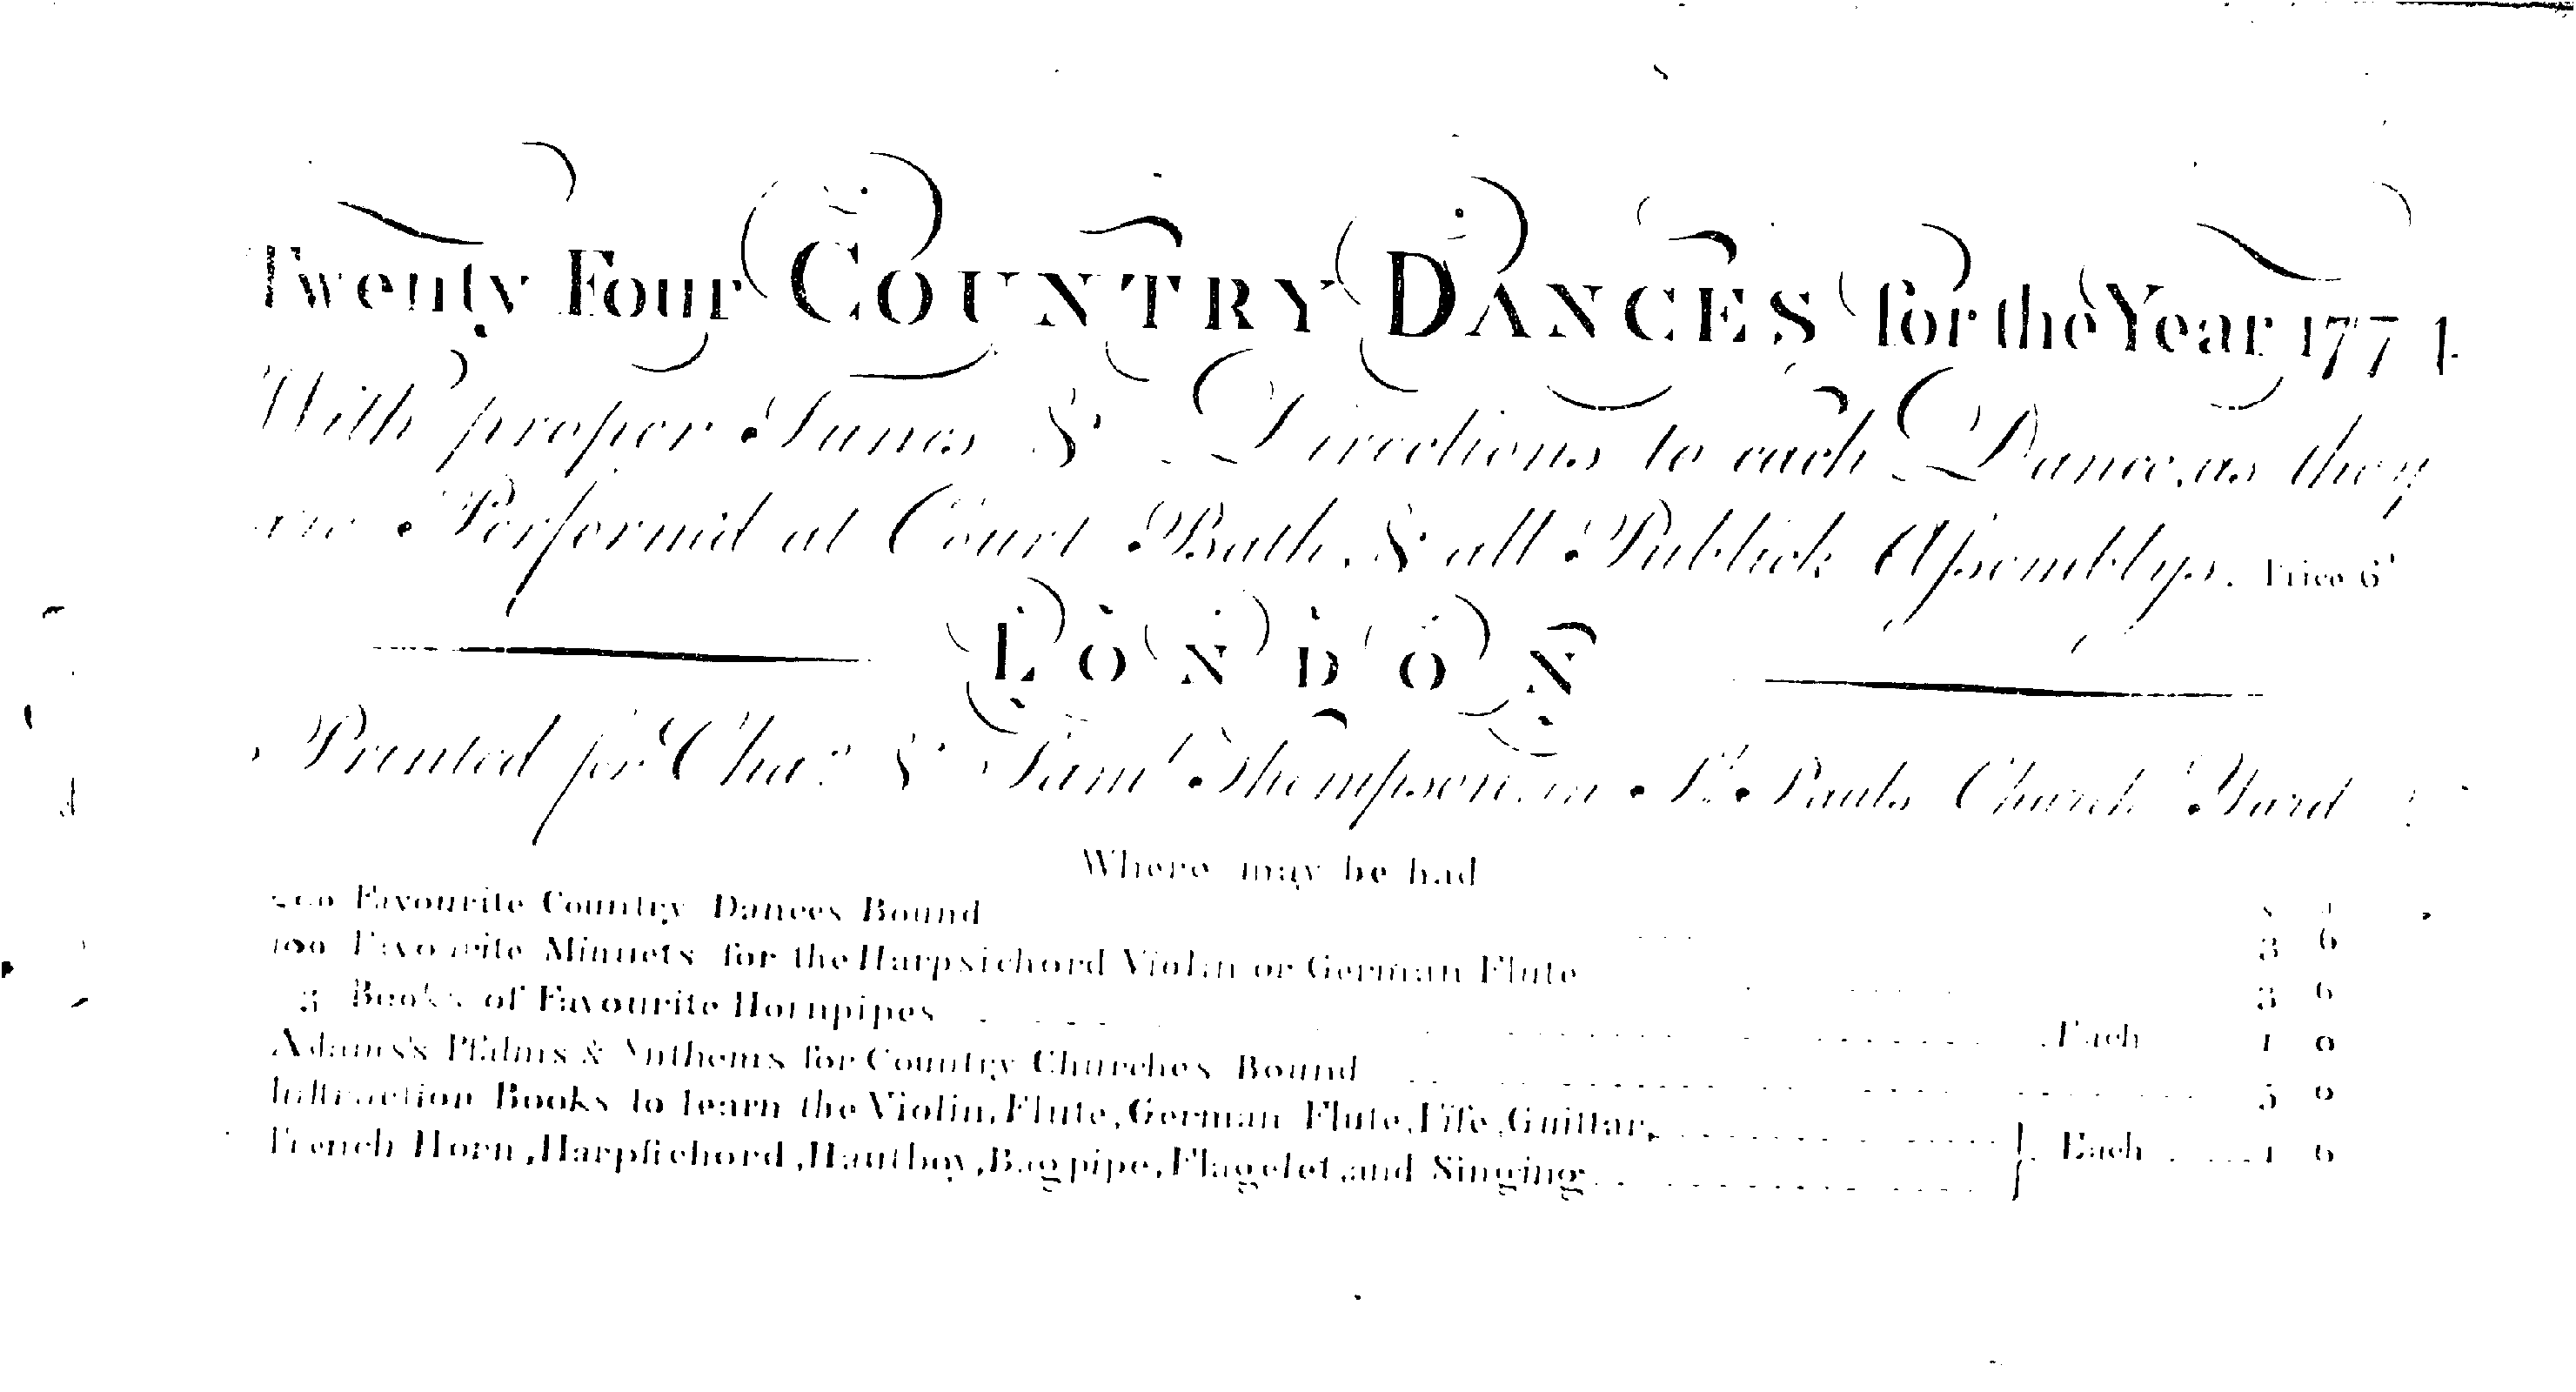 Twenty Four COUNTRY DANCES for the Year 1774
With proper Tunes & Directions to each Dance, as they
are Perform'd at Court Bath, & all Publick Assemblys. Price 6d
LONDON
Printed for Chas. & Saml. Thompson in St. Pauls Church Yard
Where may be had
200 Favourite Country Dances Bound 3 6
100 Favourite Minuets for the Harpsichord Violin or German Flute 3 6
3 Books of Favourite Hornpipes Each 1 0
Adams's Psalms & Anthems for Country Churches Bound 5 0
Instruction Books to learn the Violin, Flute, German Flute, Fife, Guittar,
French Horn, Harpsichord, Hautboy, Bagpipe, Flagelet, and Singing Each 1 6